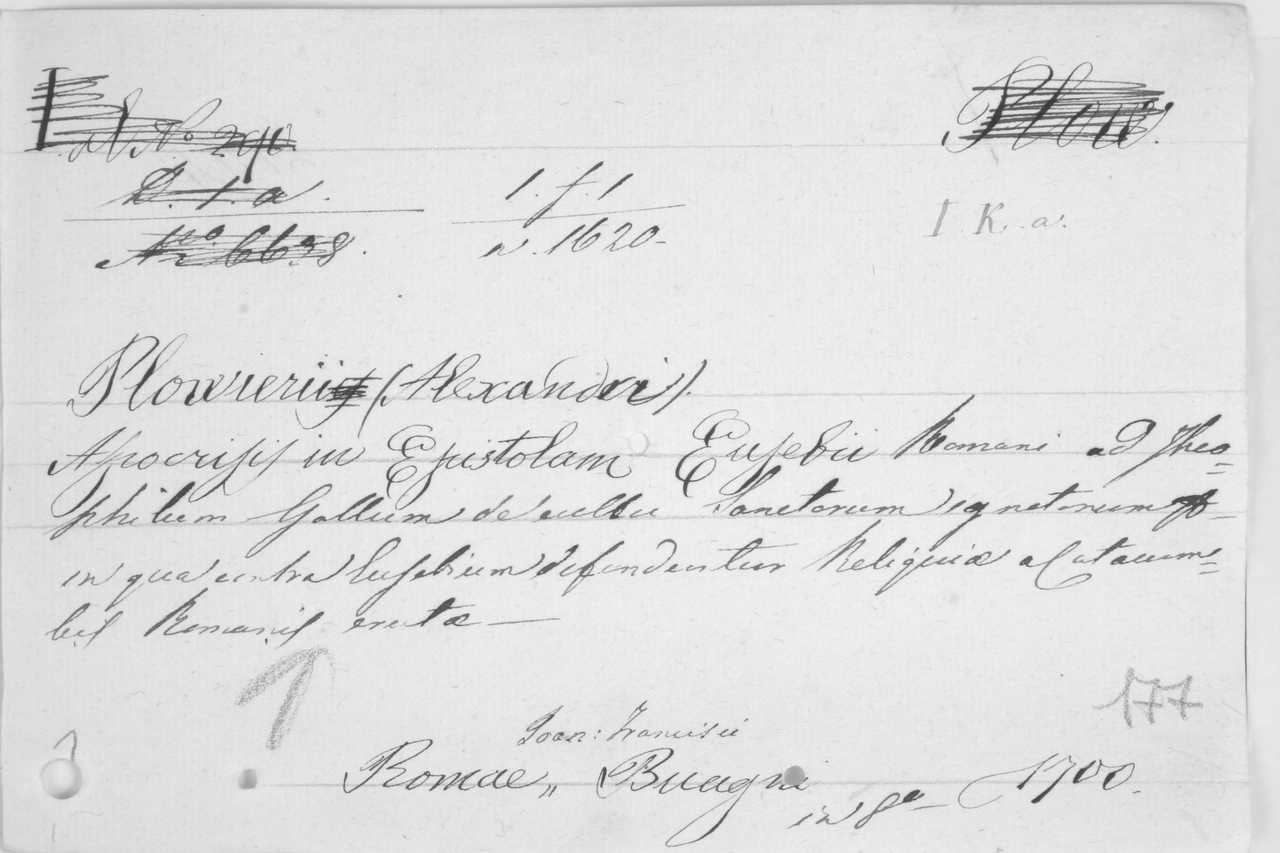 N. No 290
D. 1. a.
Nro 6638.
Plow.
1. f. 1
n. 1620-
I. K. a.
Plowierii (Alexandri).
Apocrisis in Epistolam Eusebii Romani ad Theo=
philum Gallum de cultu Sanctorum ignotorum
in qua contra Eusebium defenduntur Reliquiæ a Catacum=
bis Romanis erutæ —
1
177
Joan: Francisci
Romae „ Buagni
in 8o — 1700.